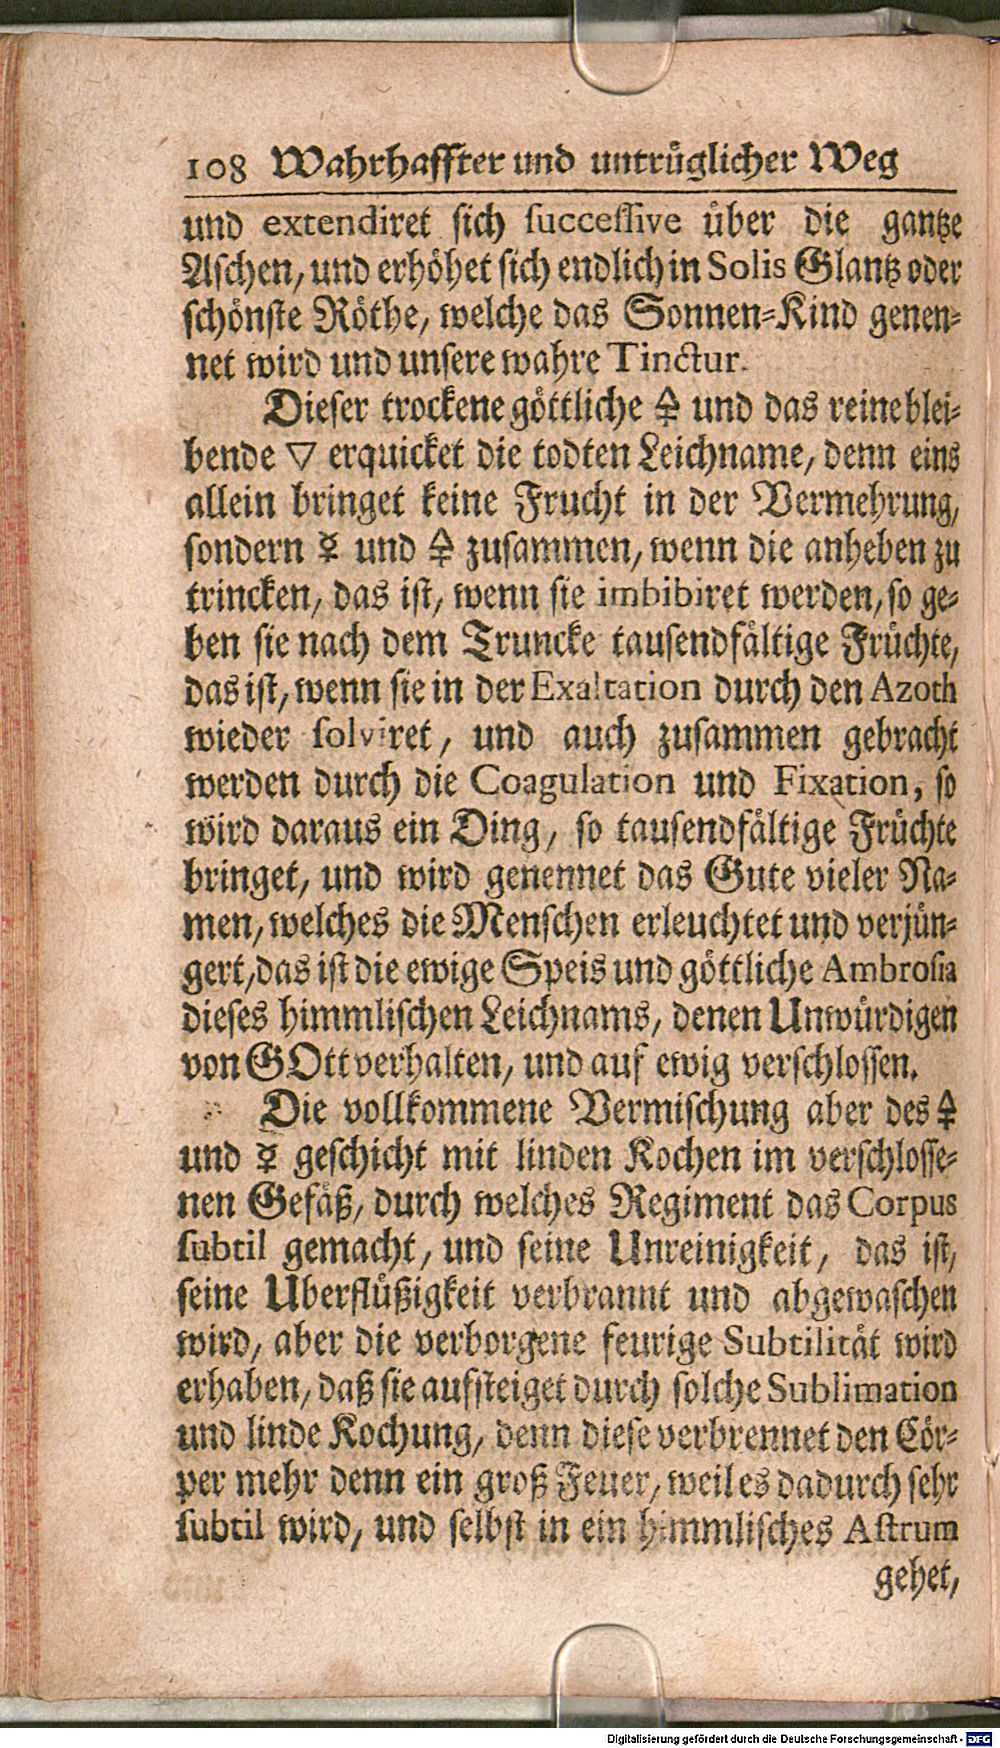 108 Wahrhaffter und untrüglicher Weg
und extendiret sich successive über die gantze
Aschen, und erhöhet sich endlich in Solis Glantz oder
schönste Röthe, welche das Sonnen-Kind genen-
net wird und unsere wahre Tinctur.
Dieser trockene göttliche 🜍 und das reine blei-
bende 🜄 erquicket die todten Leichname, denn eins
allein bringet keine Frucht in der Vermehrung,
sondern ☿ und 🜍 zusammen, wenn die anheben zu
trincken, das ist, wenn sie imbibiret werden, so ge-
ben sie nach dem Truncke tausendfältige Früchte,
das ist, wenn sie in der Exaltation durch den Azoth
wieder solviret, und auch zusammen gebracht
werden durch die Coagulation und Fixation, so
wird daraus ein Ding, so tausendfältige Früchte
bringet, und wird genennet das Gute vieler Na-
men, welches die Menschen erleuchtet und verjün-
gert, das ist die ewige Speis und göttliche Ambrosia
dieses himmlischen Leichnams, denen Unwürdigen
von GOtt verhalten, und auf ewig verschlossen.
Die vollkommene Vermischung aber des 🜍
und ☿ geschicht mit linden Kochen im verschlosse-
nen Gefäß, durch welches Regiment das Corpus
subtil gemacht, und seine Unreinigkeit, das ist,
seine Uberflüßigkeit verbrannt und abgewaschen
wird, aber die verborgene feurige Subtilität wird
erhaben, daß sie aufsteiget durch solche Sublimation
und linde Kochung, denn diese verbrennet den Cör-
per mehr denn ein groß Feuer, weil es dadurch sehr
subtil wird, und selbst in ein himmlisches Astrum
gehet,
Digitalisierung gefördert durch die Deutsche Forschungsgemeinschaft - DFG